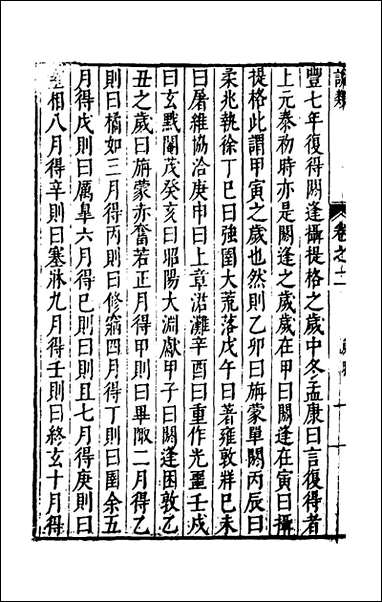 豐七年復得閼逢攝提格之歲中冬孟康曰言復得者
上元泰初時亦是閼逢之歲歲在甲曰閼逢在寅曰攝
提格此謂甲寅之歲也然則乙卯曰旃蒙單閼丙辰曰
柔兆執徐丁巳曰強圉大荒落戊午曰著雍敦牂巳未
曰屠維協洽庚申曰上章涒灘辛酉曰重作光噩壬戌
曰玄黓閹茂癸亥曰昭陽大淵獻甲子曰閼逢困敦乙
丑之歲曰旃蒙亦奮若正月得甲則曰畢陬二月得乙
則曰橘如三月得丙則曰修寎四月得丁則曰圉余五
月得戊則曰厲皐六月得巳則曰則且七月得庚則曰
相八月得辛則曰塞牀九月得壬則曰終玄十月得
卷之十二